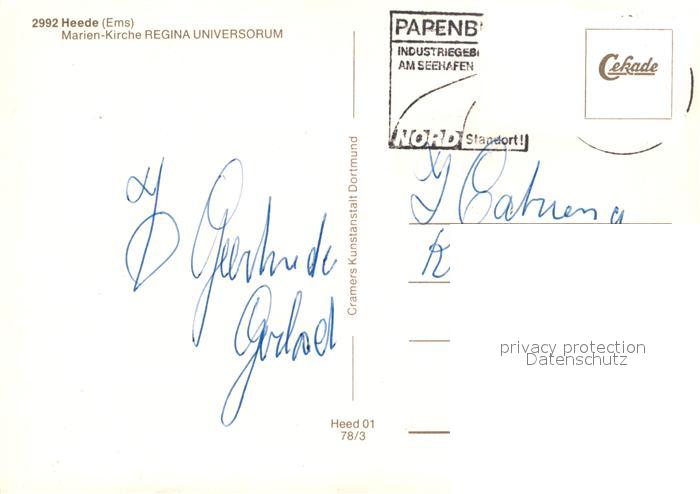 2992 Heede (Ems)
Marien-Kirche REGINA UNIVERSORUM
PAPENB
INDUSTRIEGEBI
AM SEEHAFEN
NORD Standort!
Cekade
Cramers Kunstanstalt Dortmund
Gertrude
Gerlad
K
privacy protection
Datenschutz
Heed 01
78/3